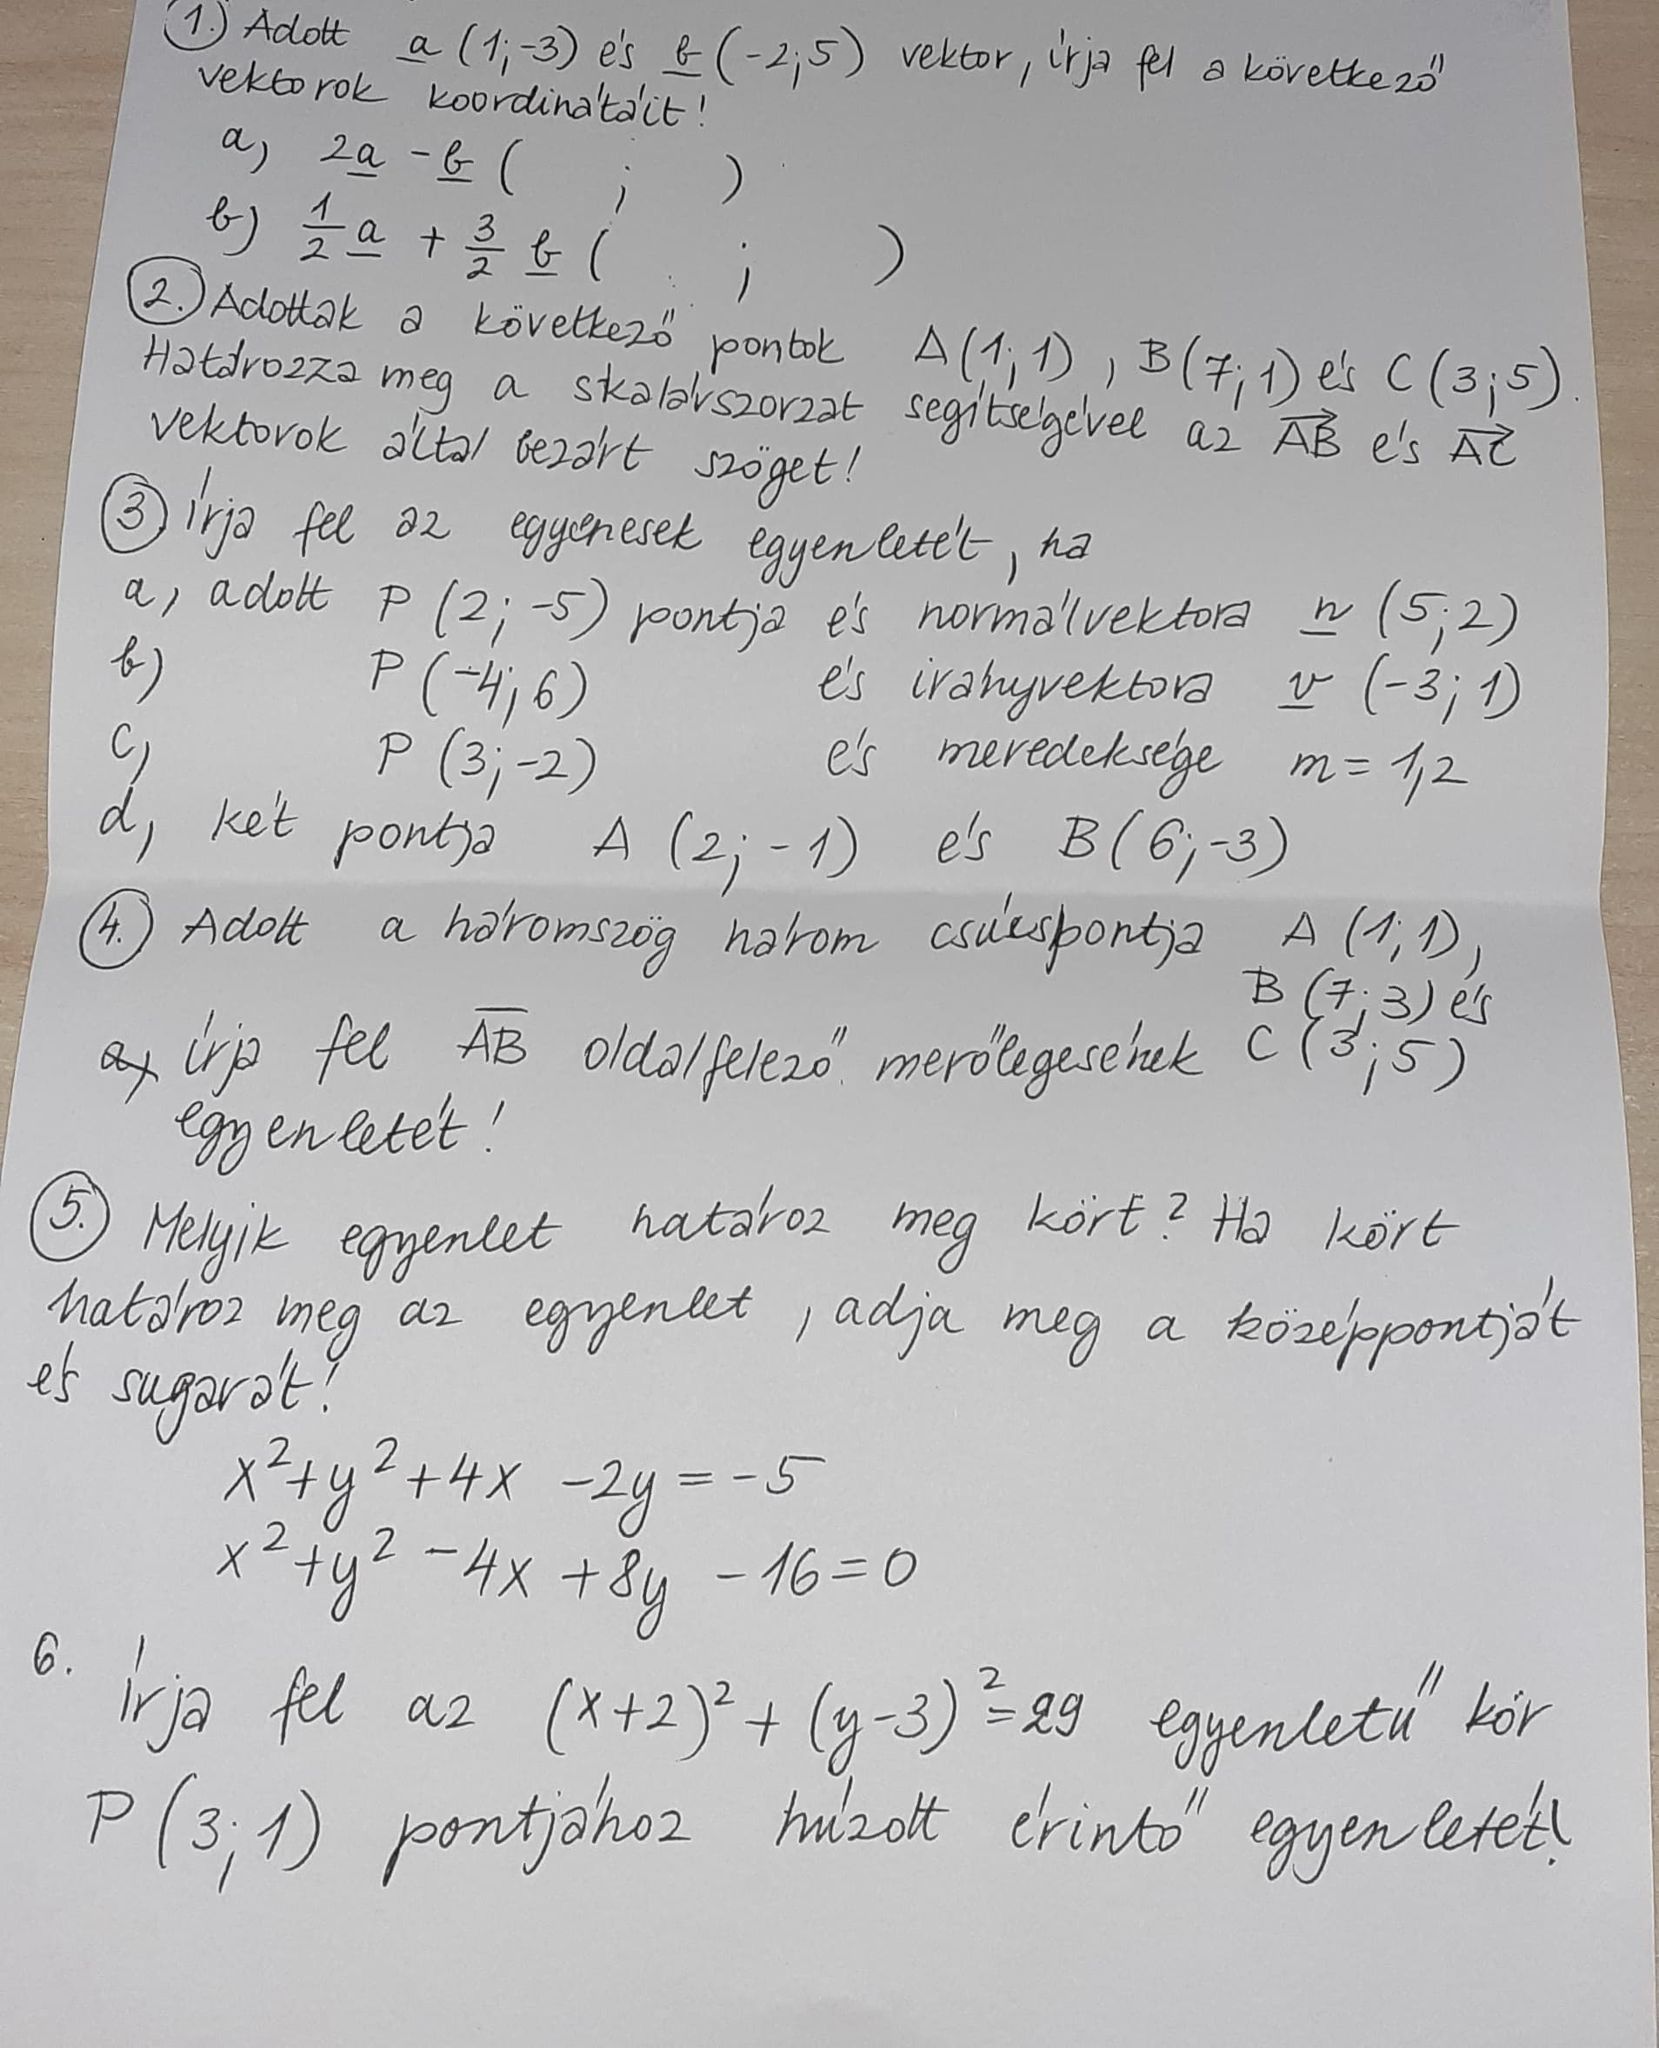 1.) Adott a (1;-3) és b (-2;5) vektor, írja fel a következő
vektorok koordinátáit!
a, 2a - b ( ; )
b) 1/2 a + 3/2 b ( ; )
2. Adottak a következő pontok A(1;1), B(7;1) és C(3;5).
Határozza meg a skalárszorzat segítségével az AB és AC
vektorok által bezárt szöget!
3. Írja fel az egyenesek egyenletét, ha
a, adott P (2; -5) pontja és normálvektora n (5;2)
b) P (-4;6) és irányvektora v (-3;1)
c, P (3;-2) és meredeksége m = 1,2
d, két pontja A (2; -1) és B(6;-3)
4. Adott a háromszög három csúcspontja A (1;1),
B (7;3) és
C (3;5)
a, írja fel AB oldalfelező merőlegesének
egyenletét!
5. Melyik egyenlet határoz meg kört? Ha kört
határoz meg az egyenlet, adja meg a középpontját
és sugarát!
x²+y²+4x -2y = -5
x²+y² -4x +8y -16=0
6.
Írja fel az (x+2)² + (y-3)² = 29 egyenletű kör
P (3;1) pontjához húzott érintő egyenletét!